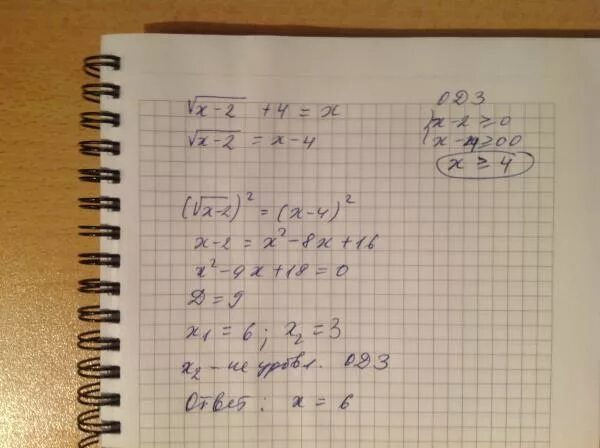 √x-2 + 4 = x
√x-2 = x-4
ОДЗ
x-2 ≥ 0
x-4 ≥ 0
x ≥ 4
(√x-2)² = (x-4)²
x-2 = x²-8x+16
x²-9x+18=0
D=9
x₁=6; x₂=3
x₂ - не удовл. ОДЗ
Ответ: x = 6